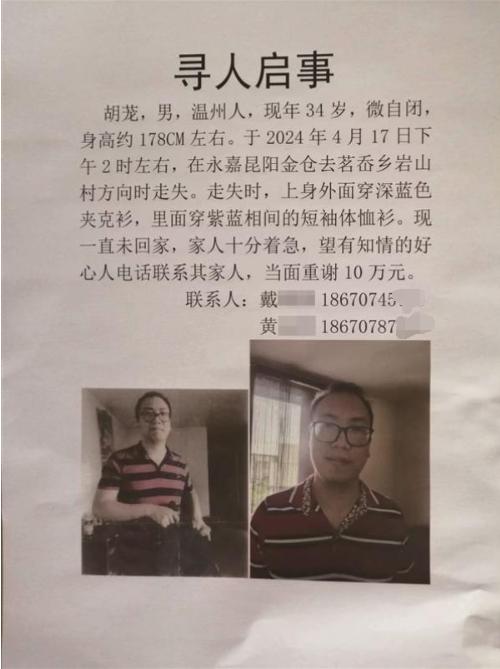 寻人启事
胡茏，男，温州人，现年 34 岁，微自闭，
身高约 178CM 左右。于 2024 年 4 月 17 日下
午 2 时左右，在永嘉昆阳金仓去茗岙乡岩山
村方向时走失。走失时，上身外面穿深蓝色
夹克衫，里面穿紫蓝相间的短袖体恤衫。现
一直未回家，家人十分着急，望有知情的好
心人电话联系其家人，当面重谢 10 万元。
联系人：戴 18670745
黄 18670787